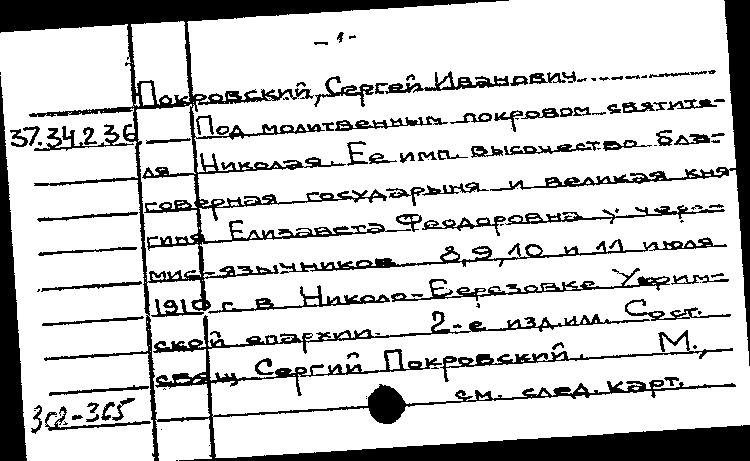 -1-
Покровский, Сергей Иванович
37.34.2.36 Под молитвенным покровом святите-
ля Николая. Ее имп. высочество бла-
говерная государыня и великая кня-
гиня Елизавета Феодоровна у чере-
мис-язычников 8, 9, 10 и 11 июля
1910 г. в Николо-Березовке Уфим-
ской епархии. 2-е изд. илл. Сост.
свящ. Сергий Покровский. М.,
302-365 см. след. карт.